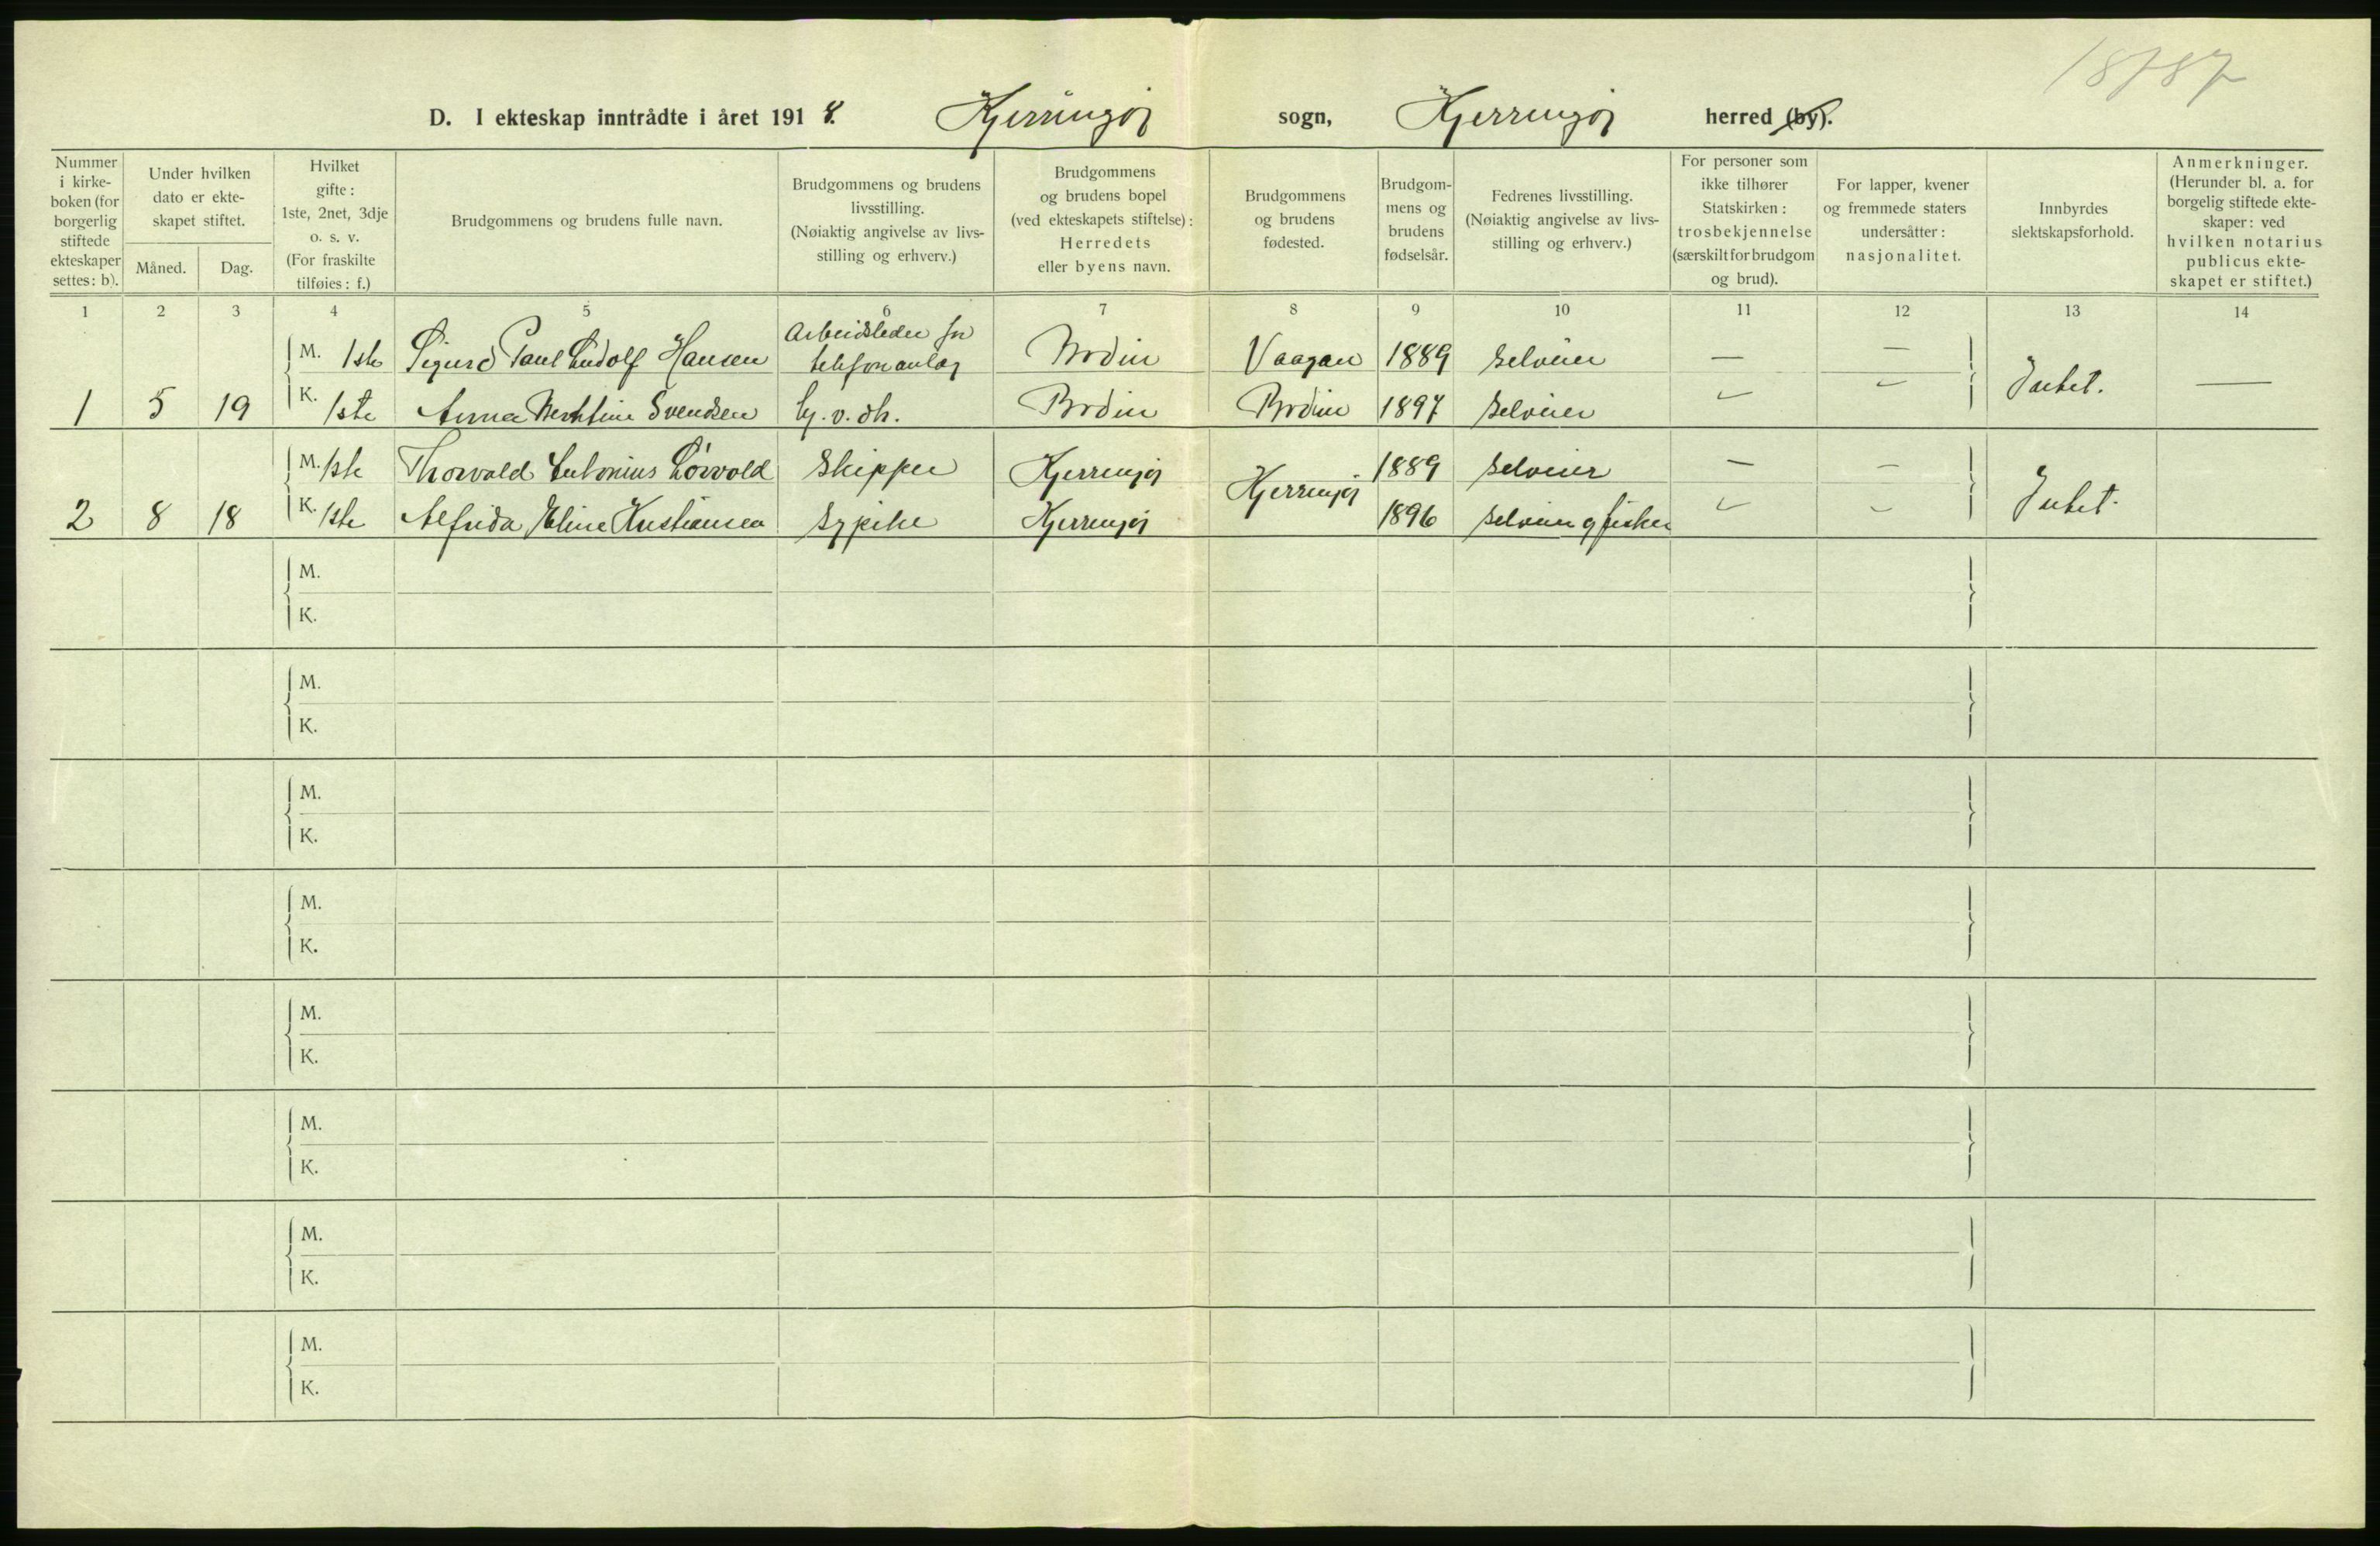 18787
D. I ekteskap inntrådte i året 1918. Kjerringøy sogn, Kjerringøy herred (by).
Nummer i kirke- boken (for borgerlig stiftede ekteskaper settes: b).
Under hvilken dato er ekte- skapet stiftet.
Måned. Dag.
Hvilket gifte: 1ste, 2net, 3dje o. s. v. (For fraskilte tilføies: f.)
Brudgommens og brudens fulle navn.
Brudgommens og brudens livsstilling. (Nøiaktig angivelse av livs- stilling og erhverv.)
Brudgommens og brudens bopel (ved ekteskapets stiftelse): Herredets eller byens navn.
Brudgommens og brudens fødested.
Brudgom- mens og brudens fødselsår.
Fedrenes livsstilling. (Nøiaktig angivelse av livs- stilling og erhverv.)
For personer som ikke tilhører Statskirken: trosbekjennelse (særskilt for brudgom og brud).
For lapper, kvener og fremmede staters undersåtter: nasjonalitet.
Innbyrdes slektskapsforhold.
Anmerkninger. (Herunder bl. a. for borgelig stiftede ekte- skaper: ved hvilken notarius publicus ekte- skapet er stiftet.)
1 2 3 4 5 6 7 8 9 10 11 12 13 14
M. 1ste Sigurd Paul Ludolf Hansen Arbeidsleder for telefonanlæg Bodin Vaagan 1889 selveier — —
1 5 19 K. 1ste Anna Berntine Svendsen Bodin Bodin 1897 selveier Intet. —
M. 1ste Thorvald Antonius Løvold Skipper Kjerringøy Kjerringøy 1889 selveier — —
2 8 18 K. 1ste Alfrida Eline Kristiansen Sypike Kjerringøy 1896 selveier og fisker Intet.
M.
K.
M.
K.
M.
K.
M.
K.
M.
K.
M.
K.
M.
K.
M.
K.